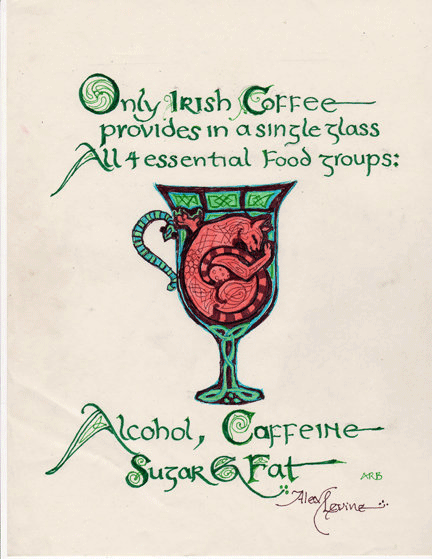 Only Irish Coffee
provides in a single glass
All 4 essential Food groups:
Alcohol, Caffeine
Sugar & Fat
ARB
Alex Levine